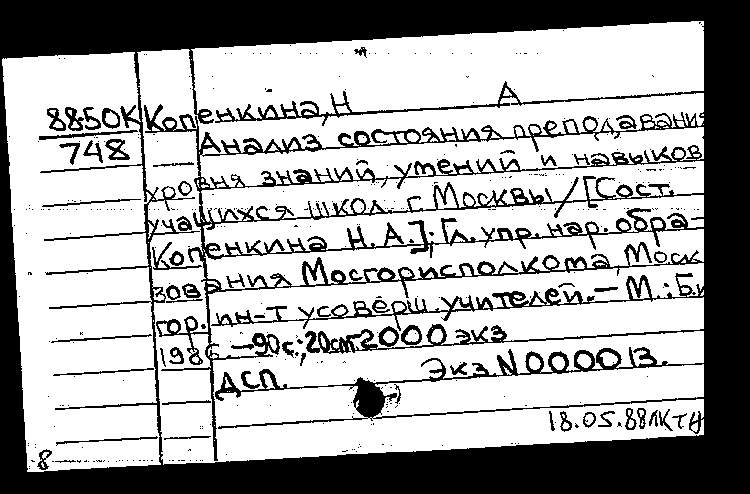 88-50К Копенкина, Н А
748 Анализ состояния преподавания
уровня знаний, умений и навыков
учащихся школ г Москвы / [Сост.
Копенкина Н. А.]; Гл. упр. нар. обра-
зования Мосгорисполкома, Моск
гор. ин-т усоверш. учителей. — М.: Би
1986. — 90 с.; 20 см 2000 экз
ДСП. Экз. N 000013.
18.05.88
8